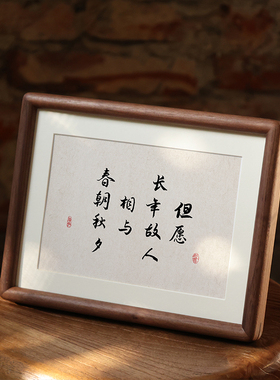 但愿
长年故人
相与
春朝秋夕